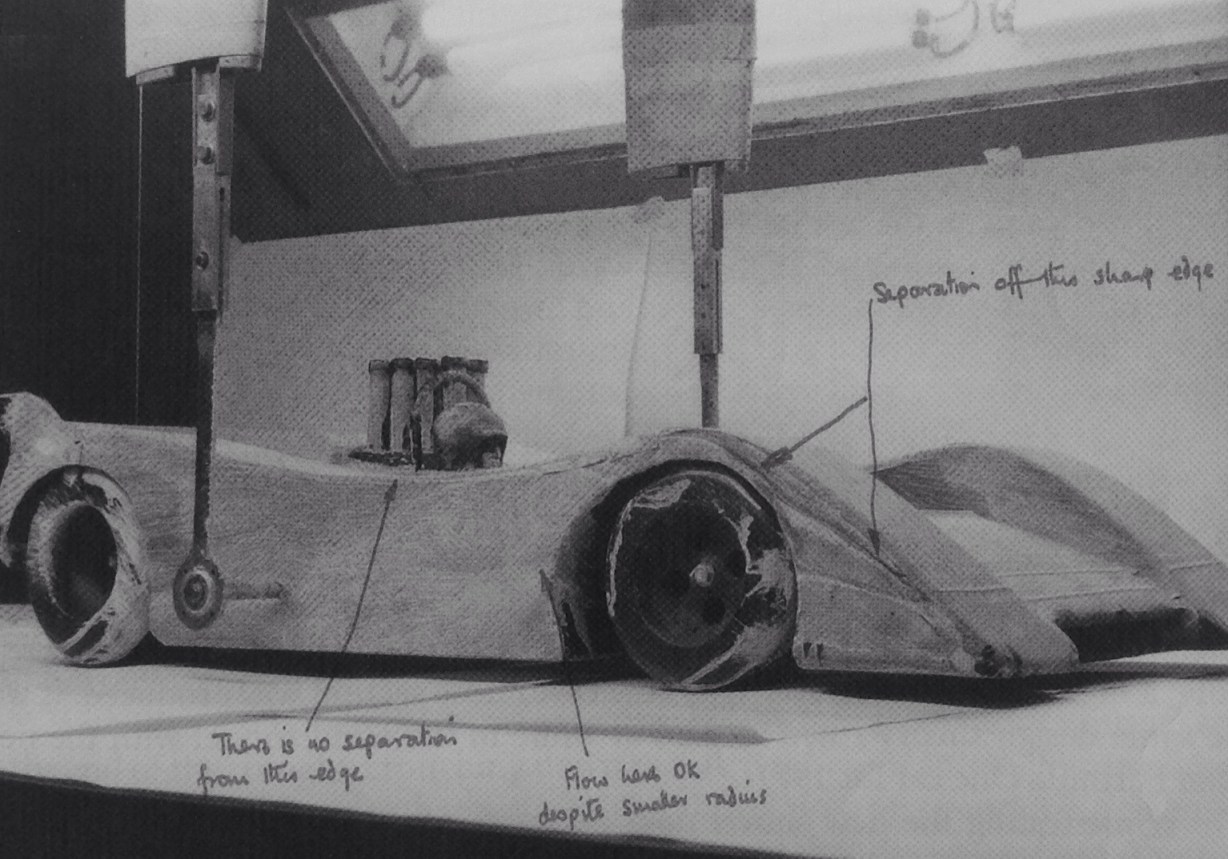 Separation off this sharp edge
There is no separation
from this edge
Flow here OK
despite smaller radius